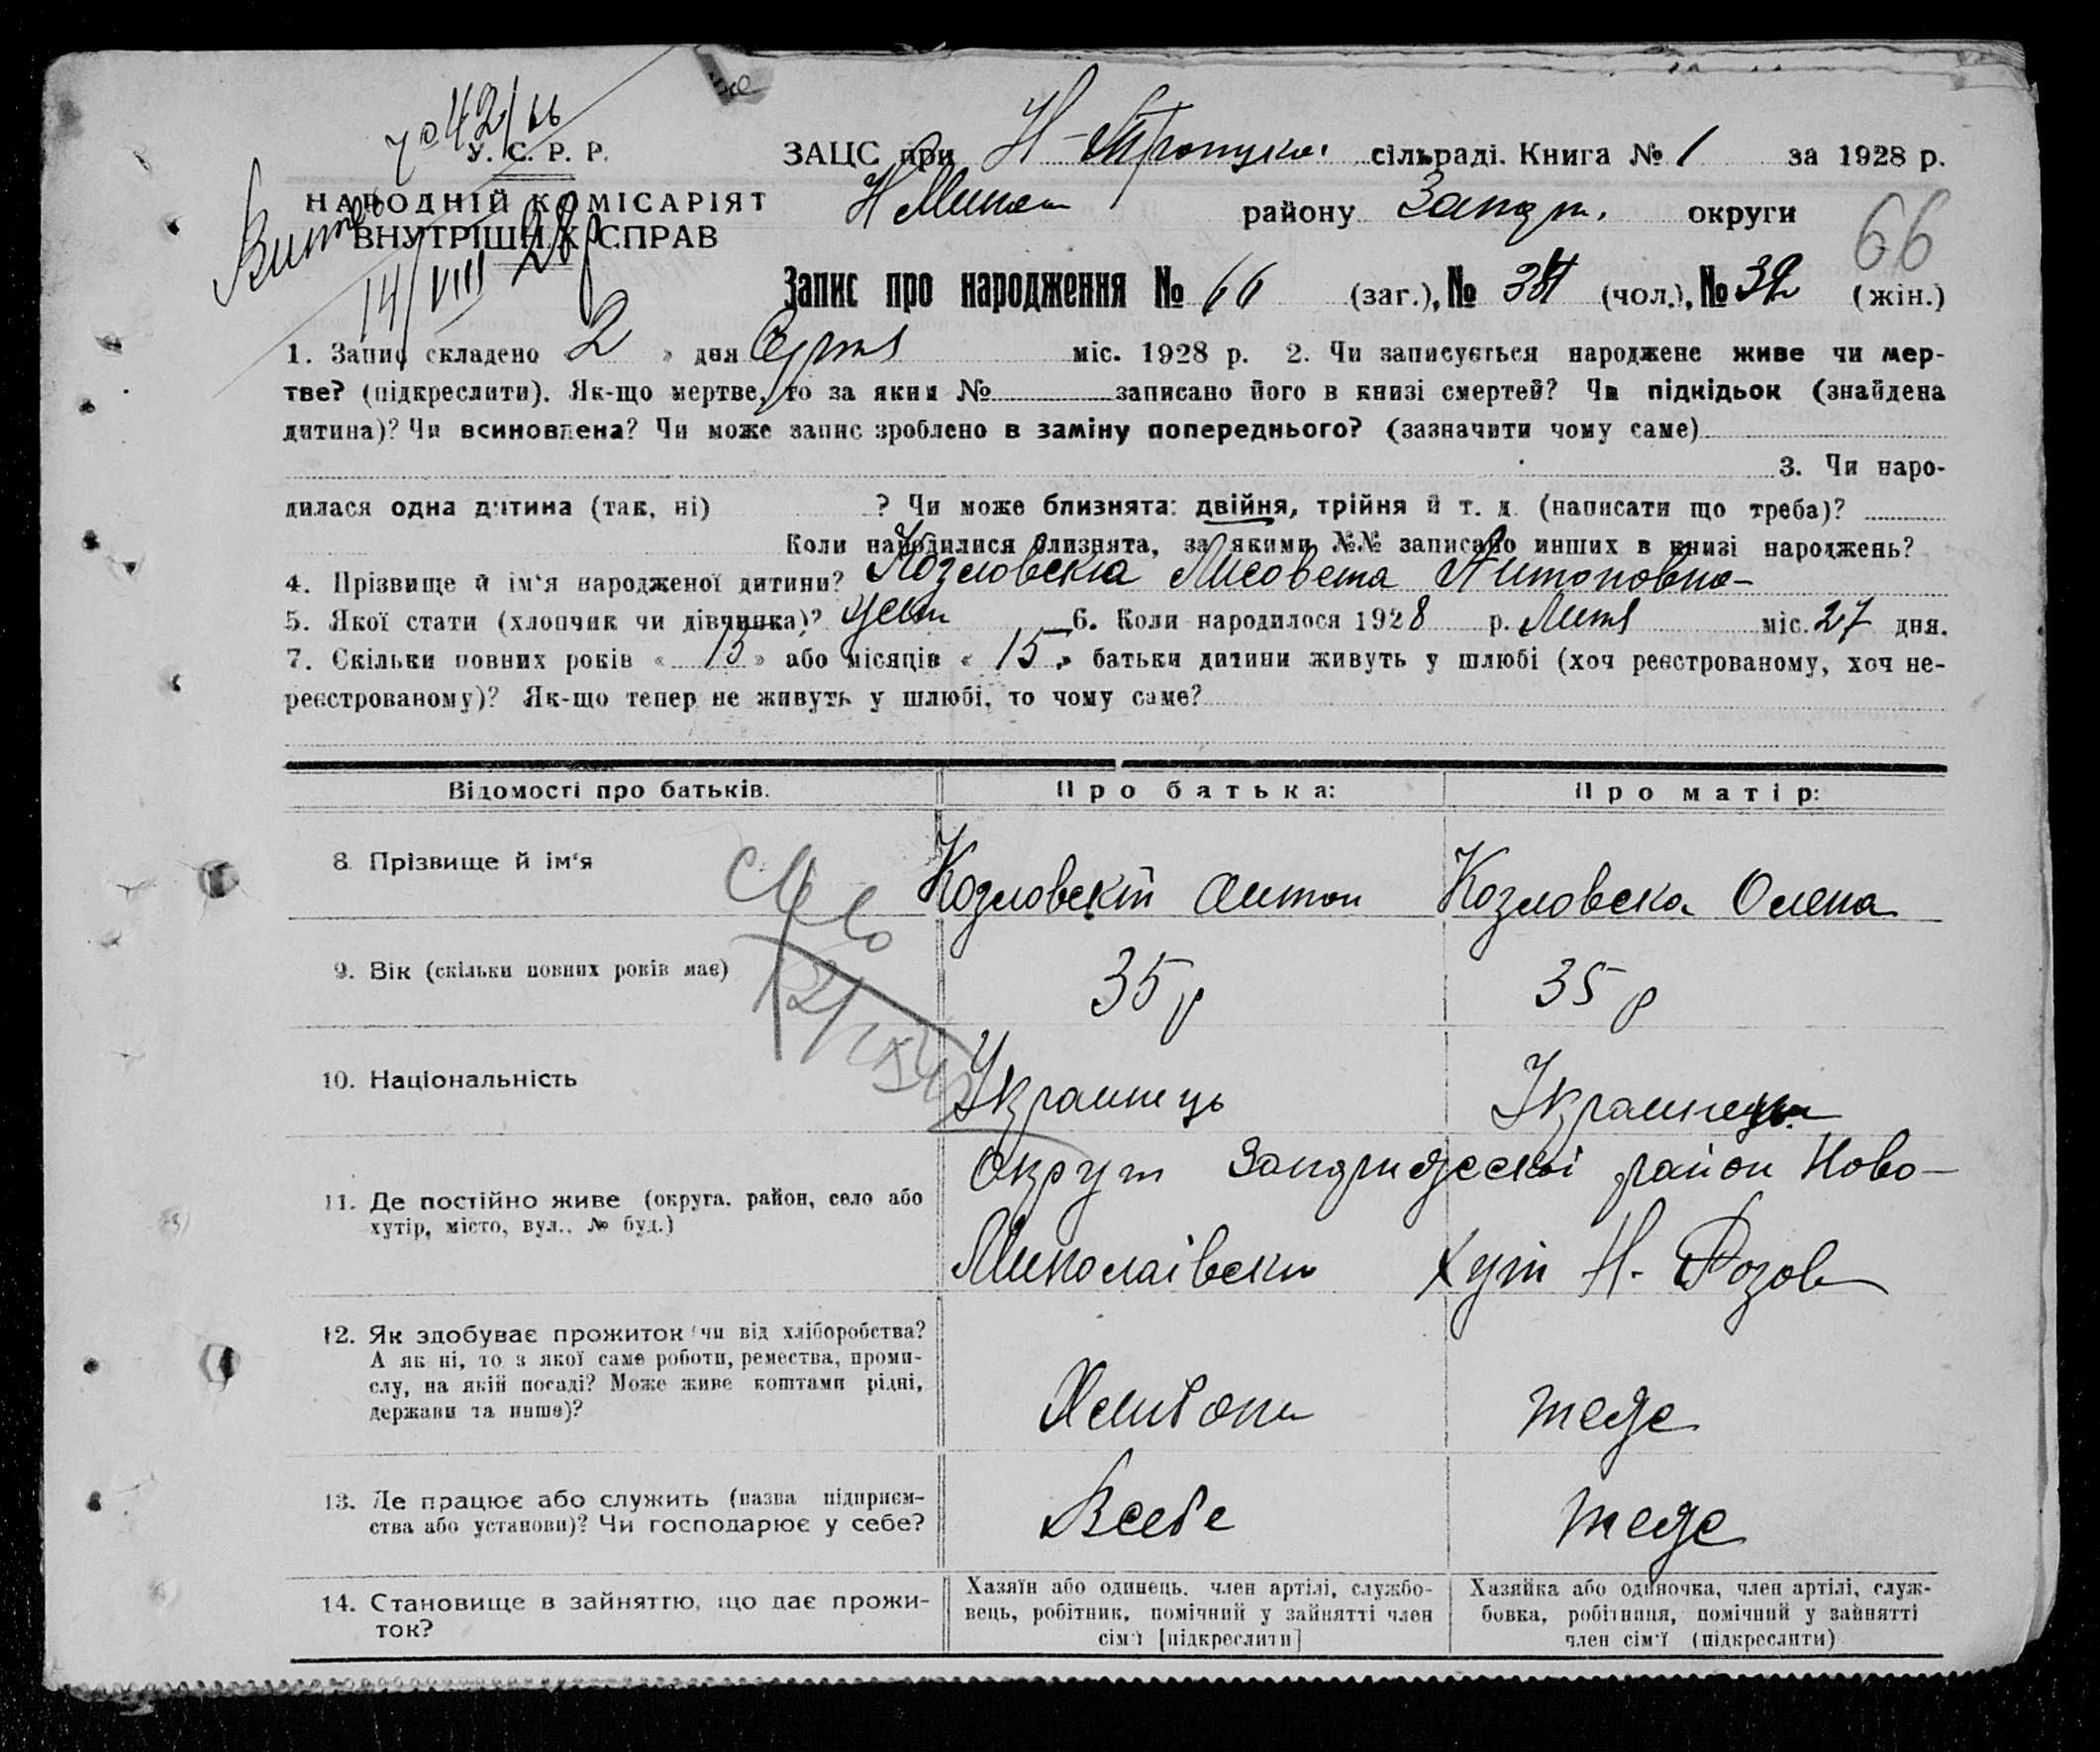 У. С. Р. Р.
НАРОДНІЙ КОМІСАРІЯТ
ВНУТРІШНІХ СПРАВ
14/VIII 28 р
ЗАЦС при Н-Троицкої сільраді. Книга № 1 за 1928 р.
району Запор. округи
66
Запис про народження № 66 (заг.), № 34 (чол.), № 32 (жін.)
1. Запис складено 2 » дня Серпня міс. 1928 р. 2. Чи записується народжене живе чи мер-
тве? (підкреслити). Як-що мертве, то за яким № записано його в книзі смертей? Чи підкідьок (знайдена
дитина)? Чи всиновлена? Чи може запис зроблено в заміну попереднього? (зазначити чому саме)
3. Чи наро-
дилася одна дитина (так, ні) ? Чи може близнята: двійня, трійня й т. д. (написати що треба)?
Коли народилися близнята, за якими №№ записано инших в книзі народжень?
4. Прізвище й ім'я народженої дитини? Козловска Лисовета Антоновна
5. Якої стати (хлопчик чи дівчинка)? 6. Коли народилося 1928 р. Липня міс. 27 дня.
7. Скільки повних років « 15 » або місяців « 15 » батьки дитини живуть у шлюбі (хоч реєстрованому, хоч не-
реєстрованому)? Як-що тепер не живуть у шлюбі, то чому саме?
Відомості про батьків. Про батька: Про матір:
8. Прізвище й ім'я Козловскій Антон Козловска Олена
9. Вік (скільки повних років має) 35 р 35 р
10. Національність Украинець Украинець
11. Де постійно живе (округа, район, село або
хутір, місто, вул., № буд.)
Округи район Ново-
Миколаівски Хут Н-Розов
12. Як здобуває прожиток (чи від хліборобства?
А як ні, то з якої саме роботи, ремества, проми-
слу, на якій посаді? Може живе коштами рідні,
держави та инше)?
теде
13. Де працює або служить (назва підприєм-
ства або установи)? Чи господарює у себе?
Всебе теде
14. Становище в зайняттю, що дає прожи-
ток?
Хазяїн або одинець, член артілі, службо-
вець, робітник, помічний у зайнятті член
сім'ї [підкреслити]
Хазяйка або одиночка, член артілі, служ-
бовка, робітниця, помічний у зайнятті
член сім'ї (підкреслити)